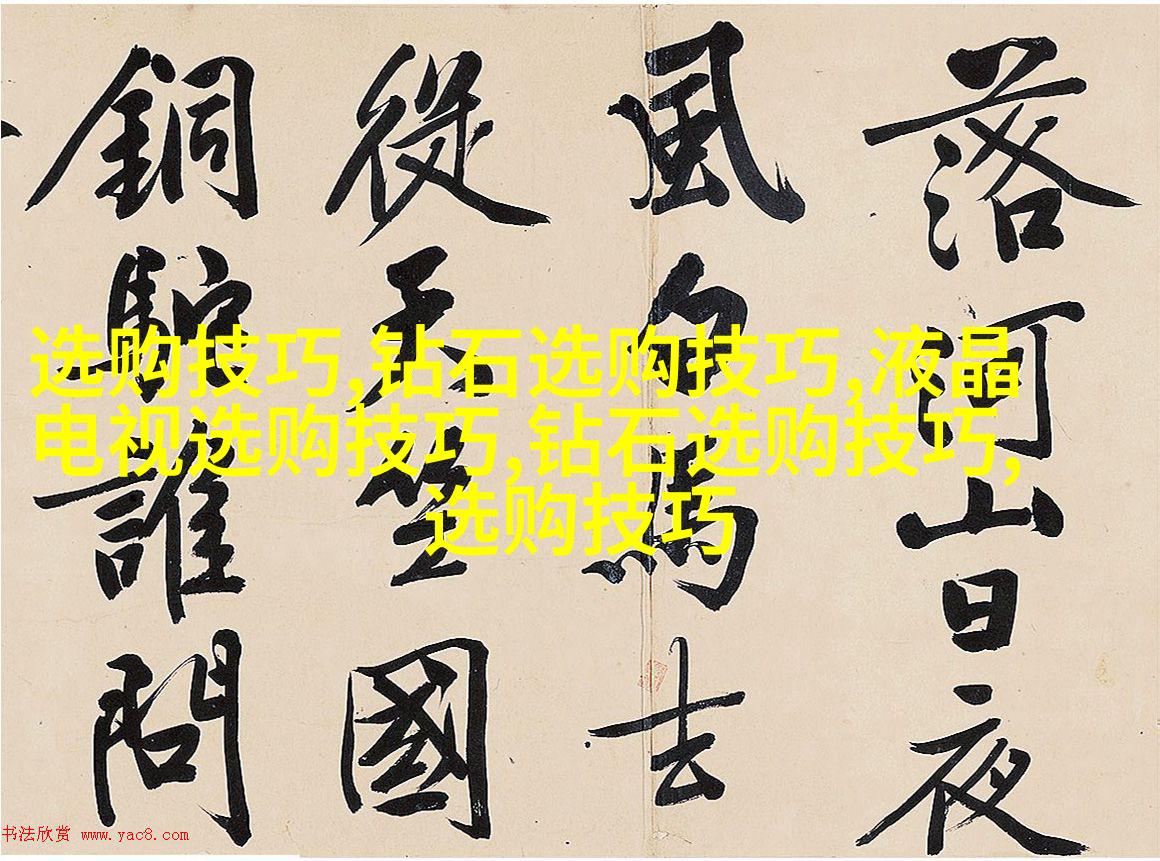 落河山日夜
風白馬去
從天竺國
銅駝誰問
选购技巧,钻石选购技巧,液晶
电视选购技巧,钻石选购技巧,
选购技巧
书法欣赏 www.yac8.com